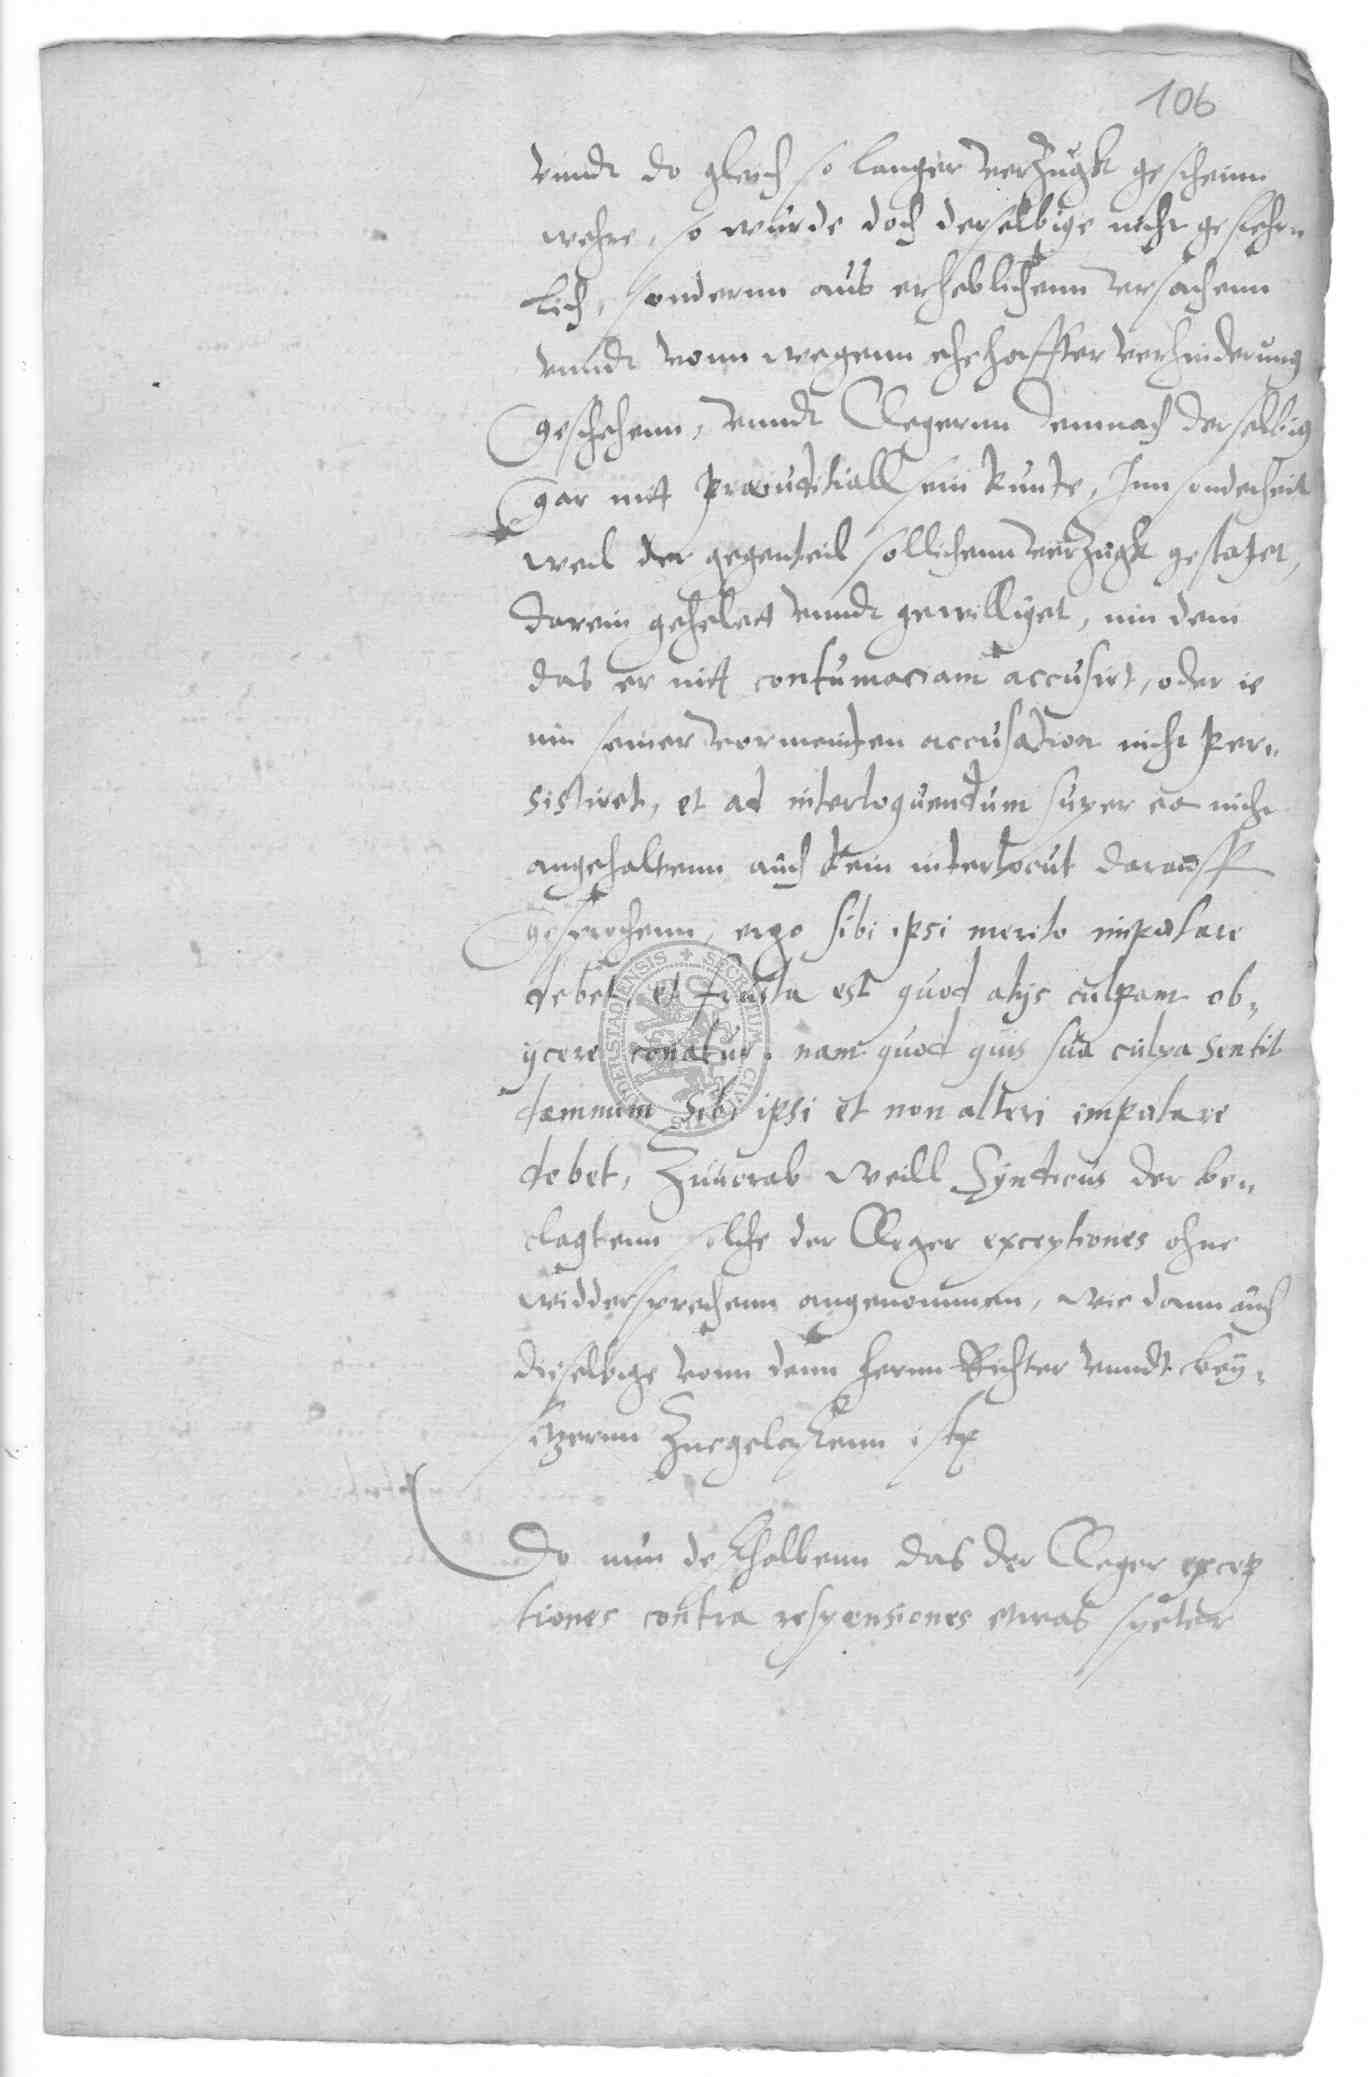 106
vnndt do gleich so langer verzugk geschienn
wehre, so wurde doch derselbige nicht gefehr„
lich, sondernn aus erheblichenn vrsachenn
vnndt vonn wegenn ehehaffter verhinderung
geschehenn, vnndt Clegernn demnach derselbig
gar nitt præiuditiall sein kunte, Inn sonderheit
weil der gegenteil sollichenn verzugk gestatet,
darein gehelett vnndt gewilliget, inn dem
das er nitt contumaciam accusirt, oder ie
inn seiner vormeinten accusation nicht per„
sistiret, et ad interloquendum super ea nicht
angehaltenn auch kein interlocut darauff
gesprochenn, ergo sibi ipsi merito imputare
debet, et frustra est quod alijs culpam ob„
ijcere conatur. nam quod quis sua culpa sentit
damnum sibi ipsi et non alteri imputare
debet, Zuuorab weill Syndicus der be„
clagtenn solche der Cleger exceptiones ohne
widdersprechenn angenommen, wie dann auch
dieselbige vonn denn hernn Richter vnndt bey„
sitzernn Zuegelassenn ist
Do nun deshalbenn das der Cleger excep
tiones contra responsiones etwas speter
SECRETUM CIVI